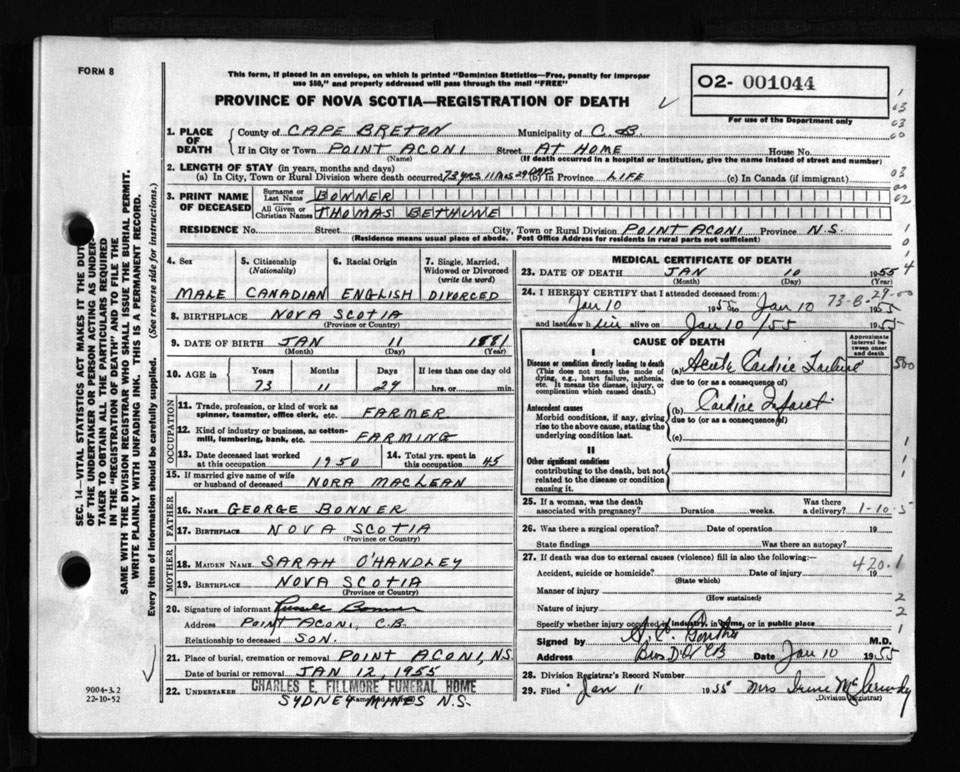 FORM 8
This form, if placed in an envelope, on which is printed "Dominion Statistics—Free, penalty for improper
use $50," and properly addressed will pass through the mail "FREE"
PROVINCE OF NOVA SCOTIA—REGISTRATION OF DEATH
O2- 001044
For use of the Department only
SEC. 14—VITAL STATISTICS ACT MAKES IT THE DUTY
OF THE UNDERTAKER OR PERSON ACTING AS UNDER-
TAKER TO OBTAIN ALL THE PARTICULARS REQUIRED
IN THE "REGISTRATION OF DEATH" AND TO FILE THE
SAME WITH THE DIVISION REGISTRAR WHO SHALL ISSUE THE BURIAL PERMIT.
WRITE PLAINLY WITH UNFADING INK. THIS IS A PERMANENT RECORD.
Every item of information should be carefully supplied. (See reverse side for instructions.)
1. PLACE OF DEATH County of CAPE BRETON Municipality of C.B.
If in City or Town POINT ACONI Street AT HOME House No.
(Name) (If death occurred in a hospital or institution, give the name instead of street and number)
2. LENGTH OF STAY (in years, months and days)
(a) In City, Town or Rural Division where death occurred 73 yrs 11 mos 29 days (b) In Province LIFE (c) In Canada (if immigrant)
3. PRINT NAME OF DECEASED
Surname or Last Name BONNER
All Given or Christian Names THOMAS BETHUNE
RESIDENCE No. Street City, Town or Rural Division POINT ACONI Province N.S.
(Residence means usual place of abode. Post Office Address for residents in rural parts not sufficient)
4. Sex 5. Citizenship (Nationality) 6. Racial Origin 7. Single, Married, Widowed or Divorced (write the word)
MALE CANADIAN ENGLISH DIVORCED
8. BIRTHPLACE NOVA SCOTIA
(Province or Country)
9. DATE OF BIRTH JAN 11 1881
(Month) (Day) (Year)
10. AGE in Years Months Days If less than one day
73 11 29 hrs. or min.
OCCUPATION
11. Trade, profession, or kind of work as spinner, teamster, office clerk, etc. FARMER
12. Kind of industry or business, as cotton-mill, lumbering, bank, etc. FARMING
13. Date deceased last worked at this occupation 1950 14. Total yrs. spent in this occupation 45
15. If married give name of wife or husband of deceased NORA MACLEAN
FATHER
16. NAME GEORGE BONNER
17. BIRTHPLACE NOVA SCOTIA
(Province or Country)
MOTHER
18. MAIDEN NAME SARAH O'HANDLEY
19. BIRTHPLACE NOVA SCOTIA
(Province or Country)
20. Signature of informant Bonner
Address POINT ACONI, C.B.
Relationship to deceased SON.
21. Place of burial, cremation or removal POINT ACONI, N.S.
Date of burial or removal JAN 12, 1955
22. UNDERTAKER CHARLES E. FILLMORE FUNERAL HOME
SYDNEY MINES N.S.
9004-3.2
22-10-52
MEDICAL CERTIFICATE OF DEATH
23. DATE OF DEATH JAN 10 1955
(Month) (Day) (Year)
24. I HEREBY CERTIFY that I attended deceased from: 73-B-29-00
Jan 10 1955 to Jan 10 1955
and last saw h im alive on Jan 10/55 1955
CAUSE OF DEATH
Approximate interval between onset and death
I
Disease or condition directly leading to death
(This does not mean the mode of dying, e.g., heart failure, asthenia, etc. It means the disease, injury, or complication which caused death.)
(a) Acute Cardiac Failure
due to (or as a consequence of)
Antecedent causes
Morbid conditions, if any, giving rise to the above cause, stating the underlying condition last.
(b) Cardiac Infarct
due to (or as a consequence of)
(c)
II
Other significant conditions
contributing to the death, but not related to the disease or condition causing it.
25. If a woman, was the death associated with pregnancy? Duration weeks. Was there a delivery? 1-10-5
26. Was there a surgical operation? Date of operation 19
State findings Was there an autopsy?
27. If death was due to external causes (violence) fill in also the following:- 420.1
Accident, suicide or homicide? Date of injury 19
(State which)
Manner of injury
(How sustained)
Nature of injury
Specify whether injury occurred in industry, in home, or in public place
Signed by M.D.
Address Date Jan 10 1955
28. Division Registrar's Record Number
29. Filed Jan 11 1955 Mrs Irene
(Division Registrar)